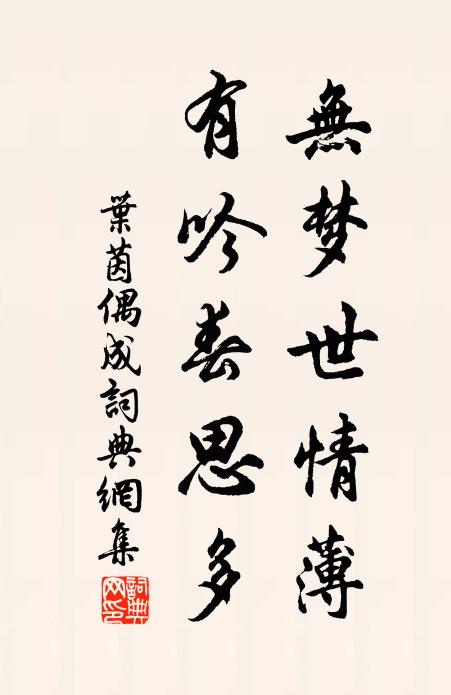 無梦世情薄
有吟春思多
葉茵偶成詞典網集
詞典網印